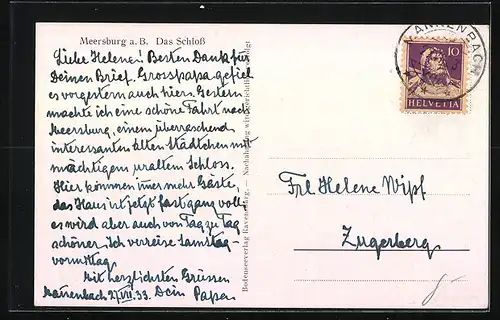 Meersburg a. B. Das Schloß
Liebe Helene! Besten Dank für
Deinen Brief. Grosspapa gefiel
es vorgestern auch hier. Gestern
machte ich eine schöne Fahrt nach
Meersburg, einem überraschend
interessanten alten Städtchen mit
mächtigem uraltem Schloss.
Hier kommen immer mehr Gäste,
das Haus ist jetzt fast ganz voll
es wird aber auch von Tag zu Tag
schöner. Ich verreise Samstag-
vormittag.
Mit herzlichsten Grüssen
Mannenbach 27.VII.33. Dein Papa
Bodenseeverlag Ravensburg. — Nachahmung wird gerichtlich verfolgt
MANNENBACH
10
HELVETIA
Frl Helene Wipf
Zugerberg